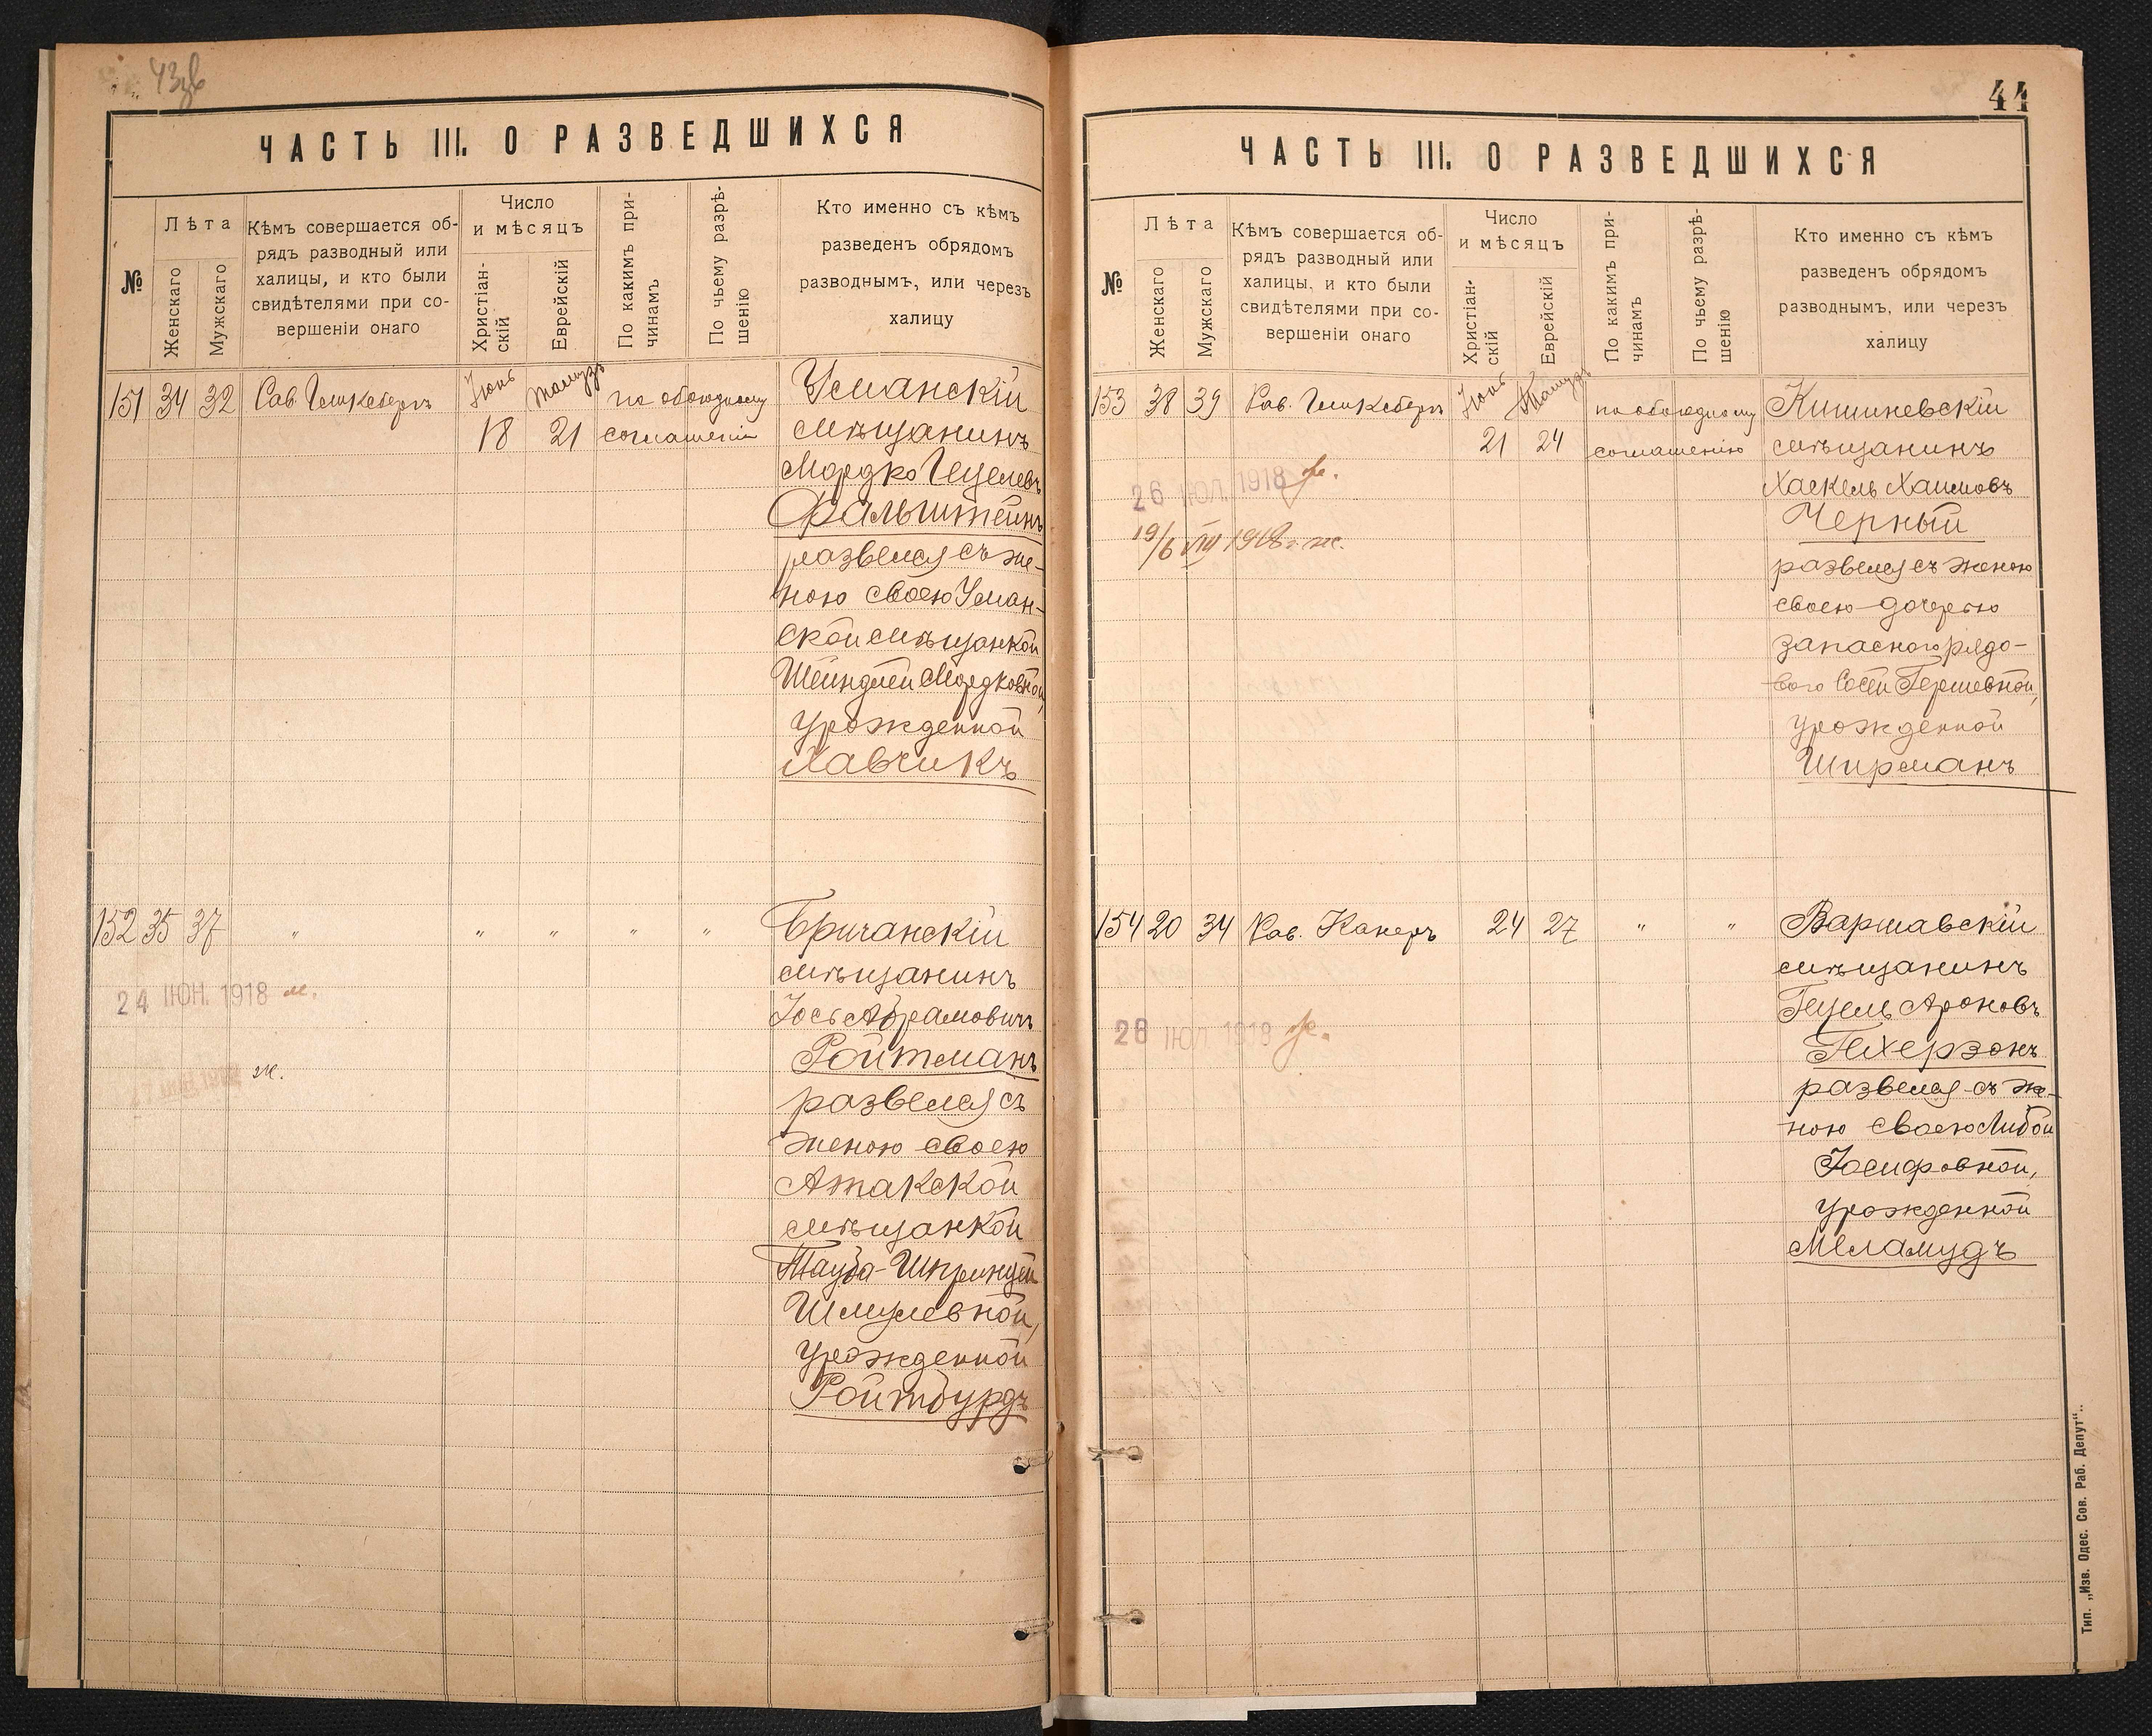 43об
ЧАСТЬ III. О РАЗВЕДШИХСЯ
№
Лѣта
Женскаго
Мужскаго
Кѣмъ совершается об-
рядъ разводный или
халицы, и кто были
свидѣтелями при со-
вершеніи онаго
Число
и мѣсяцъ
Христіан-
скій
Еврейскій
По какимъ при-
чинамъ
По чьему разрѣ-
шенію
Кто именно съ кѣмъ
разведенъ обрядомъ
разводнымъ, или черезъ
халицу
151 34 32 Іюнь Тамузъ по обоюдному Уманскій
18 21 соглашенію мѣщанинъ
Мордко Гецелевъ
Фальштейнъ
развелся съ же-
ною своею Уман-
ской мѣщанкой
Шейндлей Мордковной,
урожденной
Хавчикъ
152 35 37 " " " " " Бричанскій
мѣщанинъ
24 ІЮН. 1918 м.
Іось Абрамовичъ
Ройтманъ
ж.
развелся съ
женою своею
Атакской
мѣщанкой
Тауба-Шпринцей
Шмулевной,
урожденной
Ройтбурдъ
44
ЧАСТЬ III. О РАЗВЕДШИХСЯ
№
Лѣта
Женскаго
Мужскаго
Кѣмъ совершается об-
рядъ разводный или
халицы, и кто были
свидѣтелями при со-
вершеніи онаго
Число
и мѣсяцъ
Христіан-
скій
Еврейскій
По какимъ при-
чинамъ
По чьему разрѣ-
шенію
Кто именно съ кѣмъ
разведенъ обрядомъ
разводнымъ, или черезъ
халицу
153 38 39 Рав. Іюнь Тамузъ по обоюдному Кишиневскій
21 24 соглашенію мѣщанинъ
26 ІЮЛ. 1918
Хаскель Хаимовъ
Черный
19/6 VIII 1918 г. ж.
развелся съ женою
своею дочерью
запасного рядо-
вого Сосей Гершевной,
урожденной
Ширманъ
154 20 34 Рав. Канеръ 24 27 " " Варшавскій
мѣщанинъ
Гецель Ароновъ
28 ІЮЛ. 1918
Гехерзонъ
развелся съ же-
ною своею Либой
Іосифовной,
урожденной
Меламудъ
Тип. „Изв. Одес. Сов. Раб. Депут“..